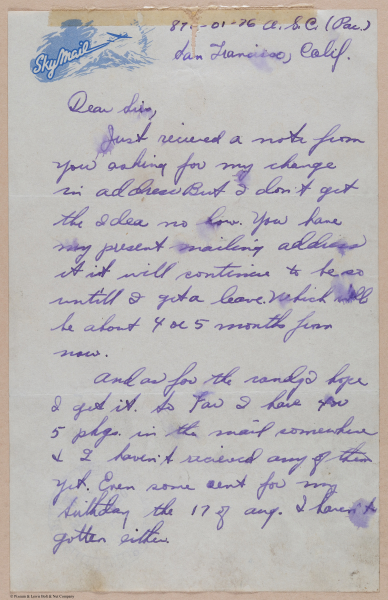 Sky Mail
87-01-76 U.S.C. (Pac.)
San Francisco, Calif.
Dear Sirs,
Just recieved a note from
you asking for my change
in address But I don't get
the Idea no how. You have
my present mailing address
it it will continue to be so
untill I get a leave. Which will
be about 4 or 5 months from
now.
And as for the candy I hope
I get it. So Far I have 4 or
5 pkgs. in the mail somewhere
& I haven't recieved any of them
yet. Even some cent for my
birthday the 17 of aug. I haven't
gotten either.